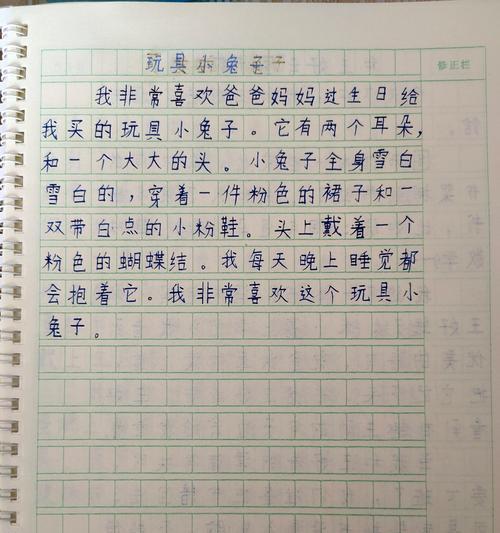 玩具小兔子
修正栏
我非常喜欢爸爸妈妈过生日给
我买的玩具小兔子。它有两个耳朵,
和一个大大的头。小兔子全身雪白
雪白的,穿着一件粉色的裙子和一
双带白点的小粉鞋。头上戴着一个
粉色的蝴蝶结。我每天晚上睡觉都
会抱着它。我非常喜欢这个玩具小
兔子。